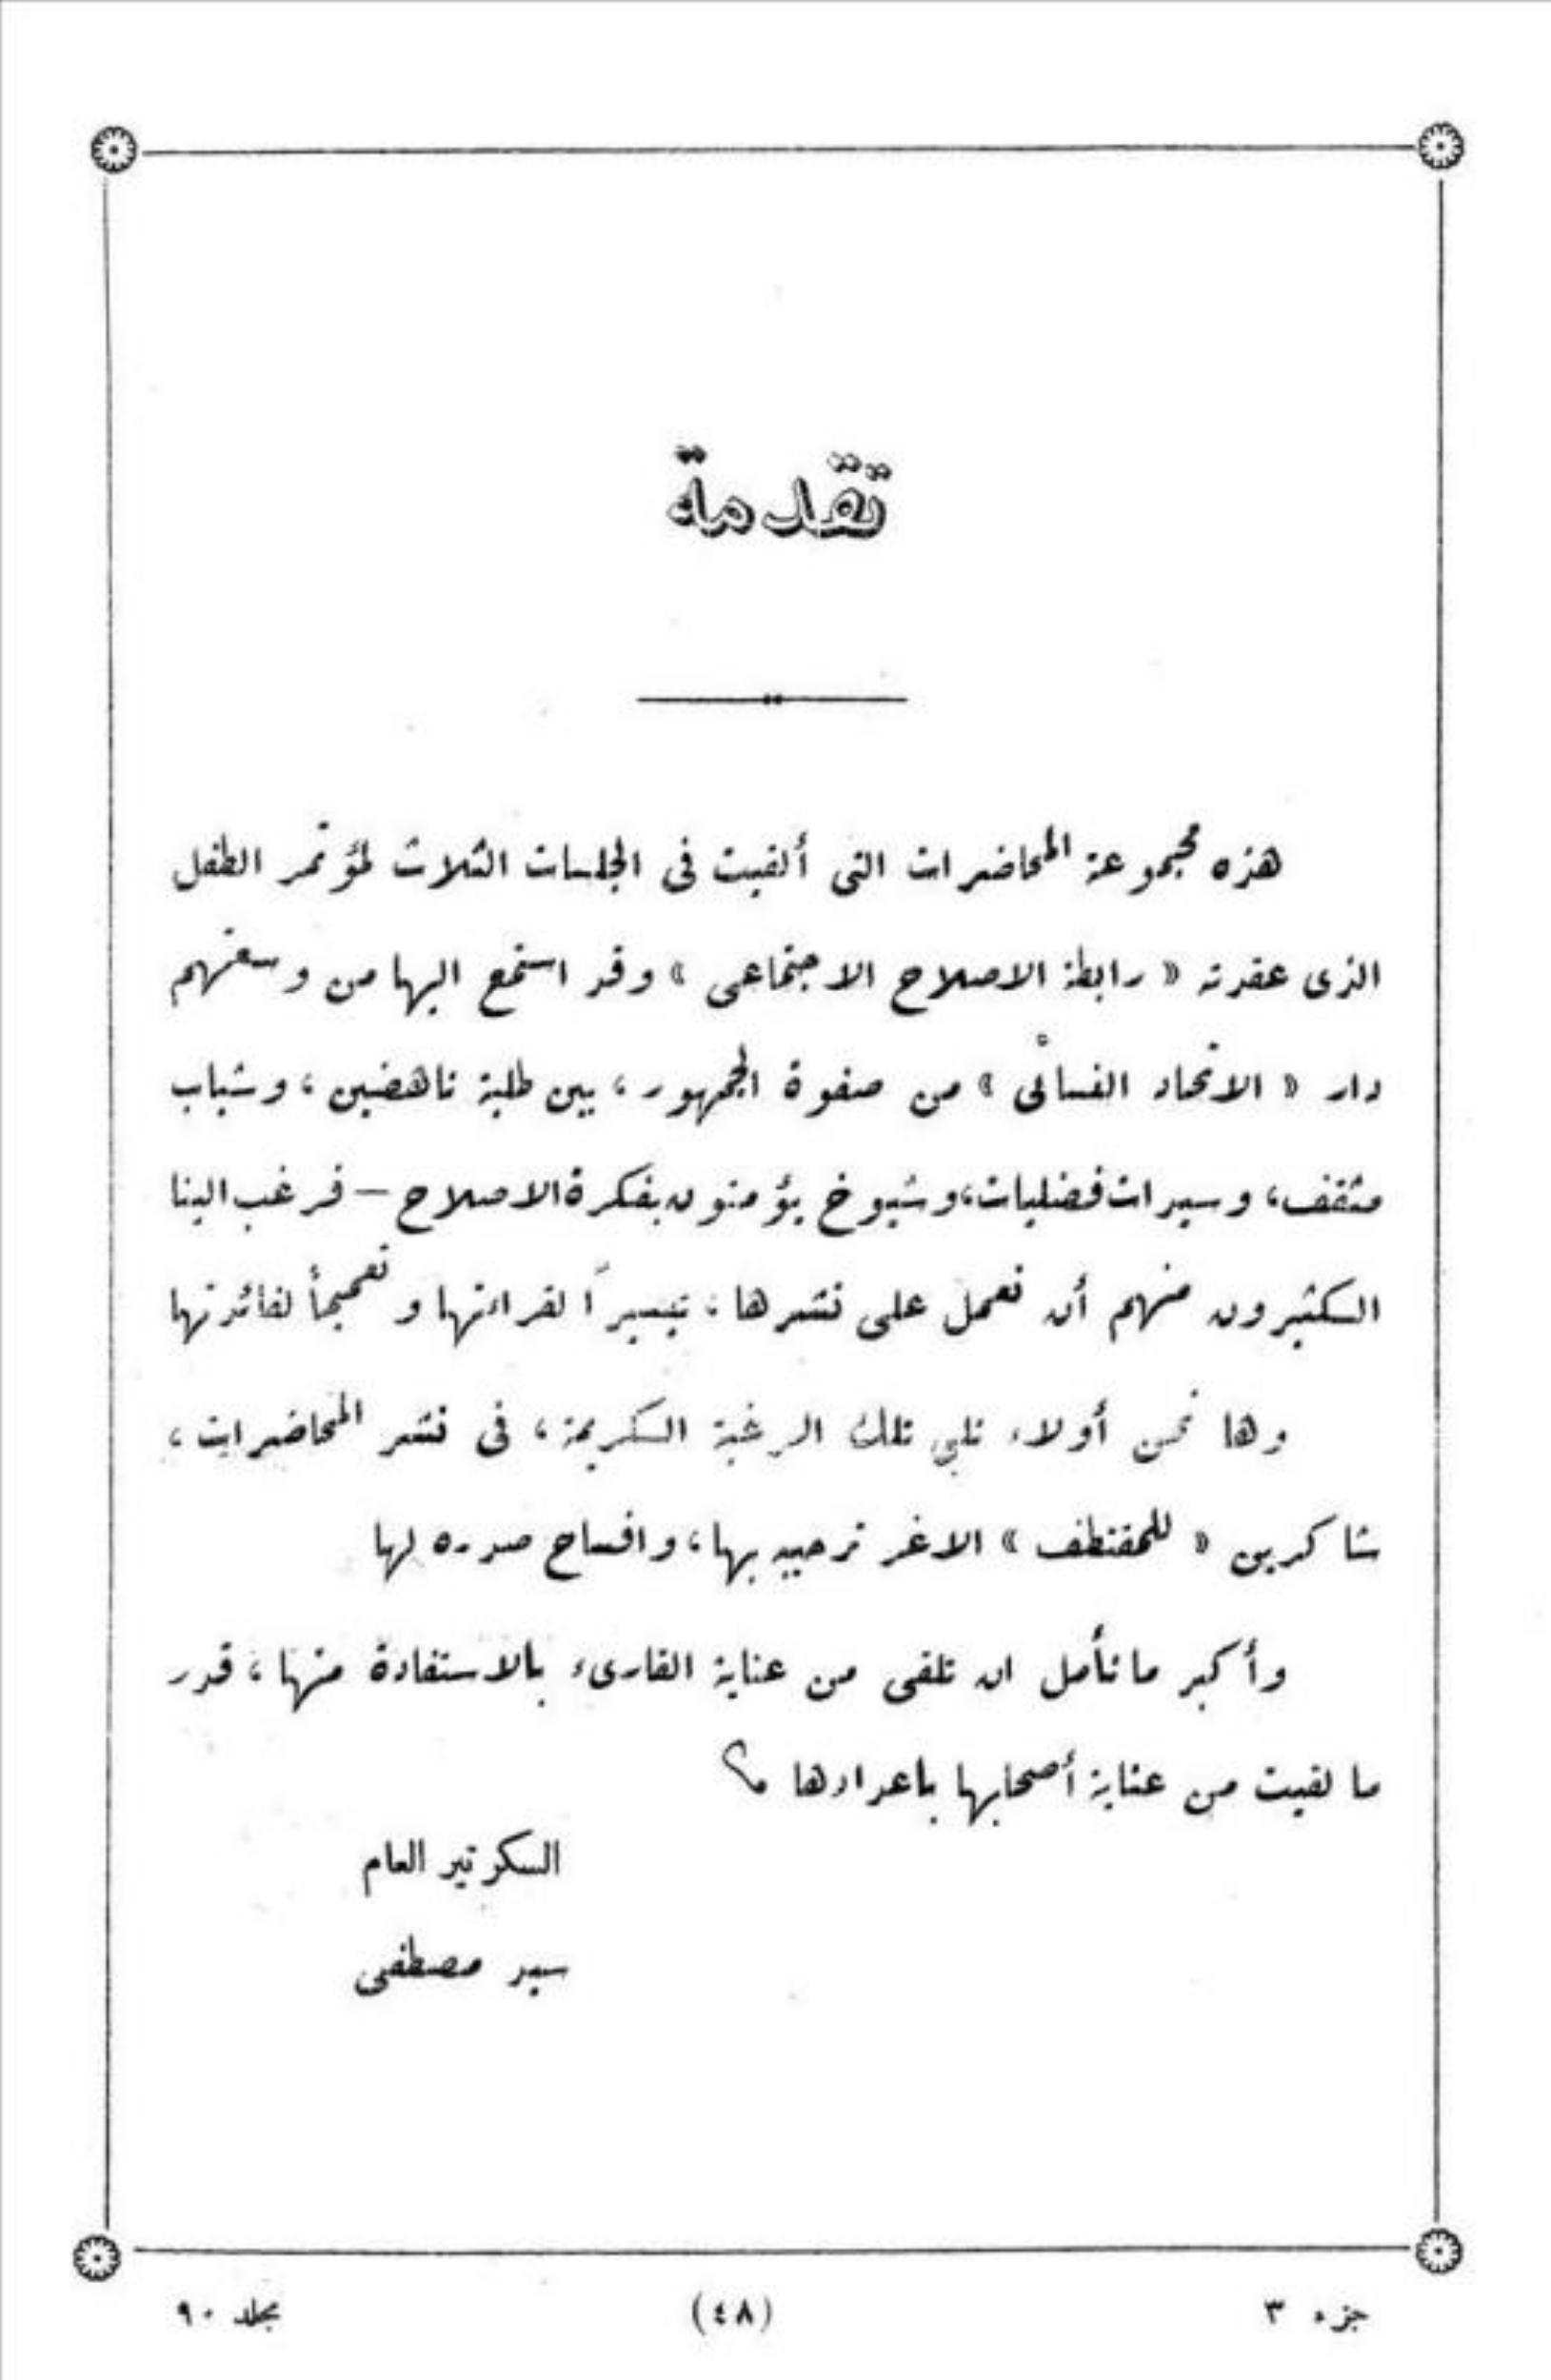 تقدمة
هذه مجموعة المحاضرات التى ألقيت فى الجلسات الثلاث لمؤتمر الطفل
الذى عقدته « رابطة الاصلاح الاجتماعى » وقد استمع اليها من وسعتهم
دار « الاتحاد النسائى » من صفوة الجمهور ، بين طلبة ناهضين ، وشباب
مثقف، وسيدات فضليات، وشيوخ يؤمنون بفكرة الاصلاح – فرغب الينا
الكثيرون منهم أن نعمل على نشرها ، تيسيراً لقراءتها وتعميماً لفائدتها
وها نحن أولاء نلبى تلك الرغبة الكريمة ، فى نشر المحاضرات ،
شاكرين « للمقتطف » الاغر ترحيبه بها ، وافساح صدره لها
وأكبر ما نأمل ان تلقى من عناية القارىء بالاستفادة منها ، قدر
ما لقيت من عناية أصحابها باعدادها
السكرتير العام
سيد مصطفى
جزء ٣ (٤٨) مجلد ٩٠